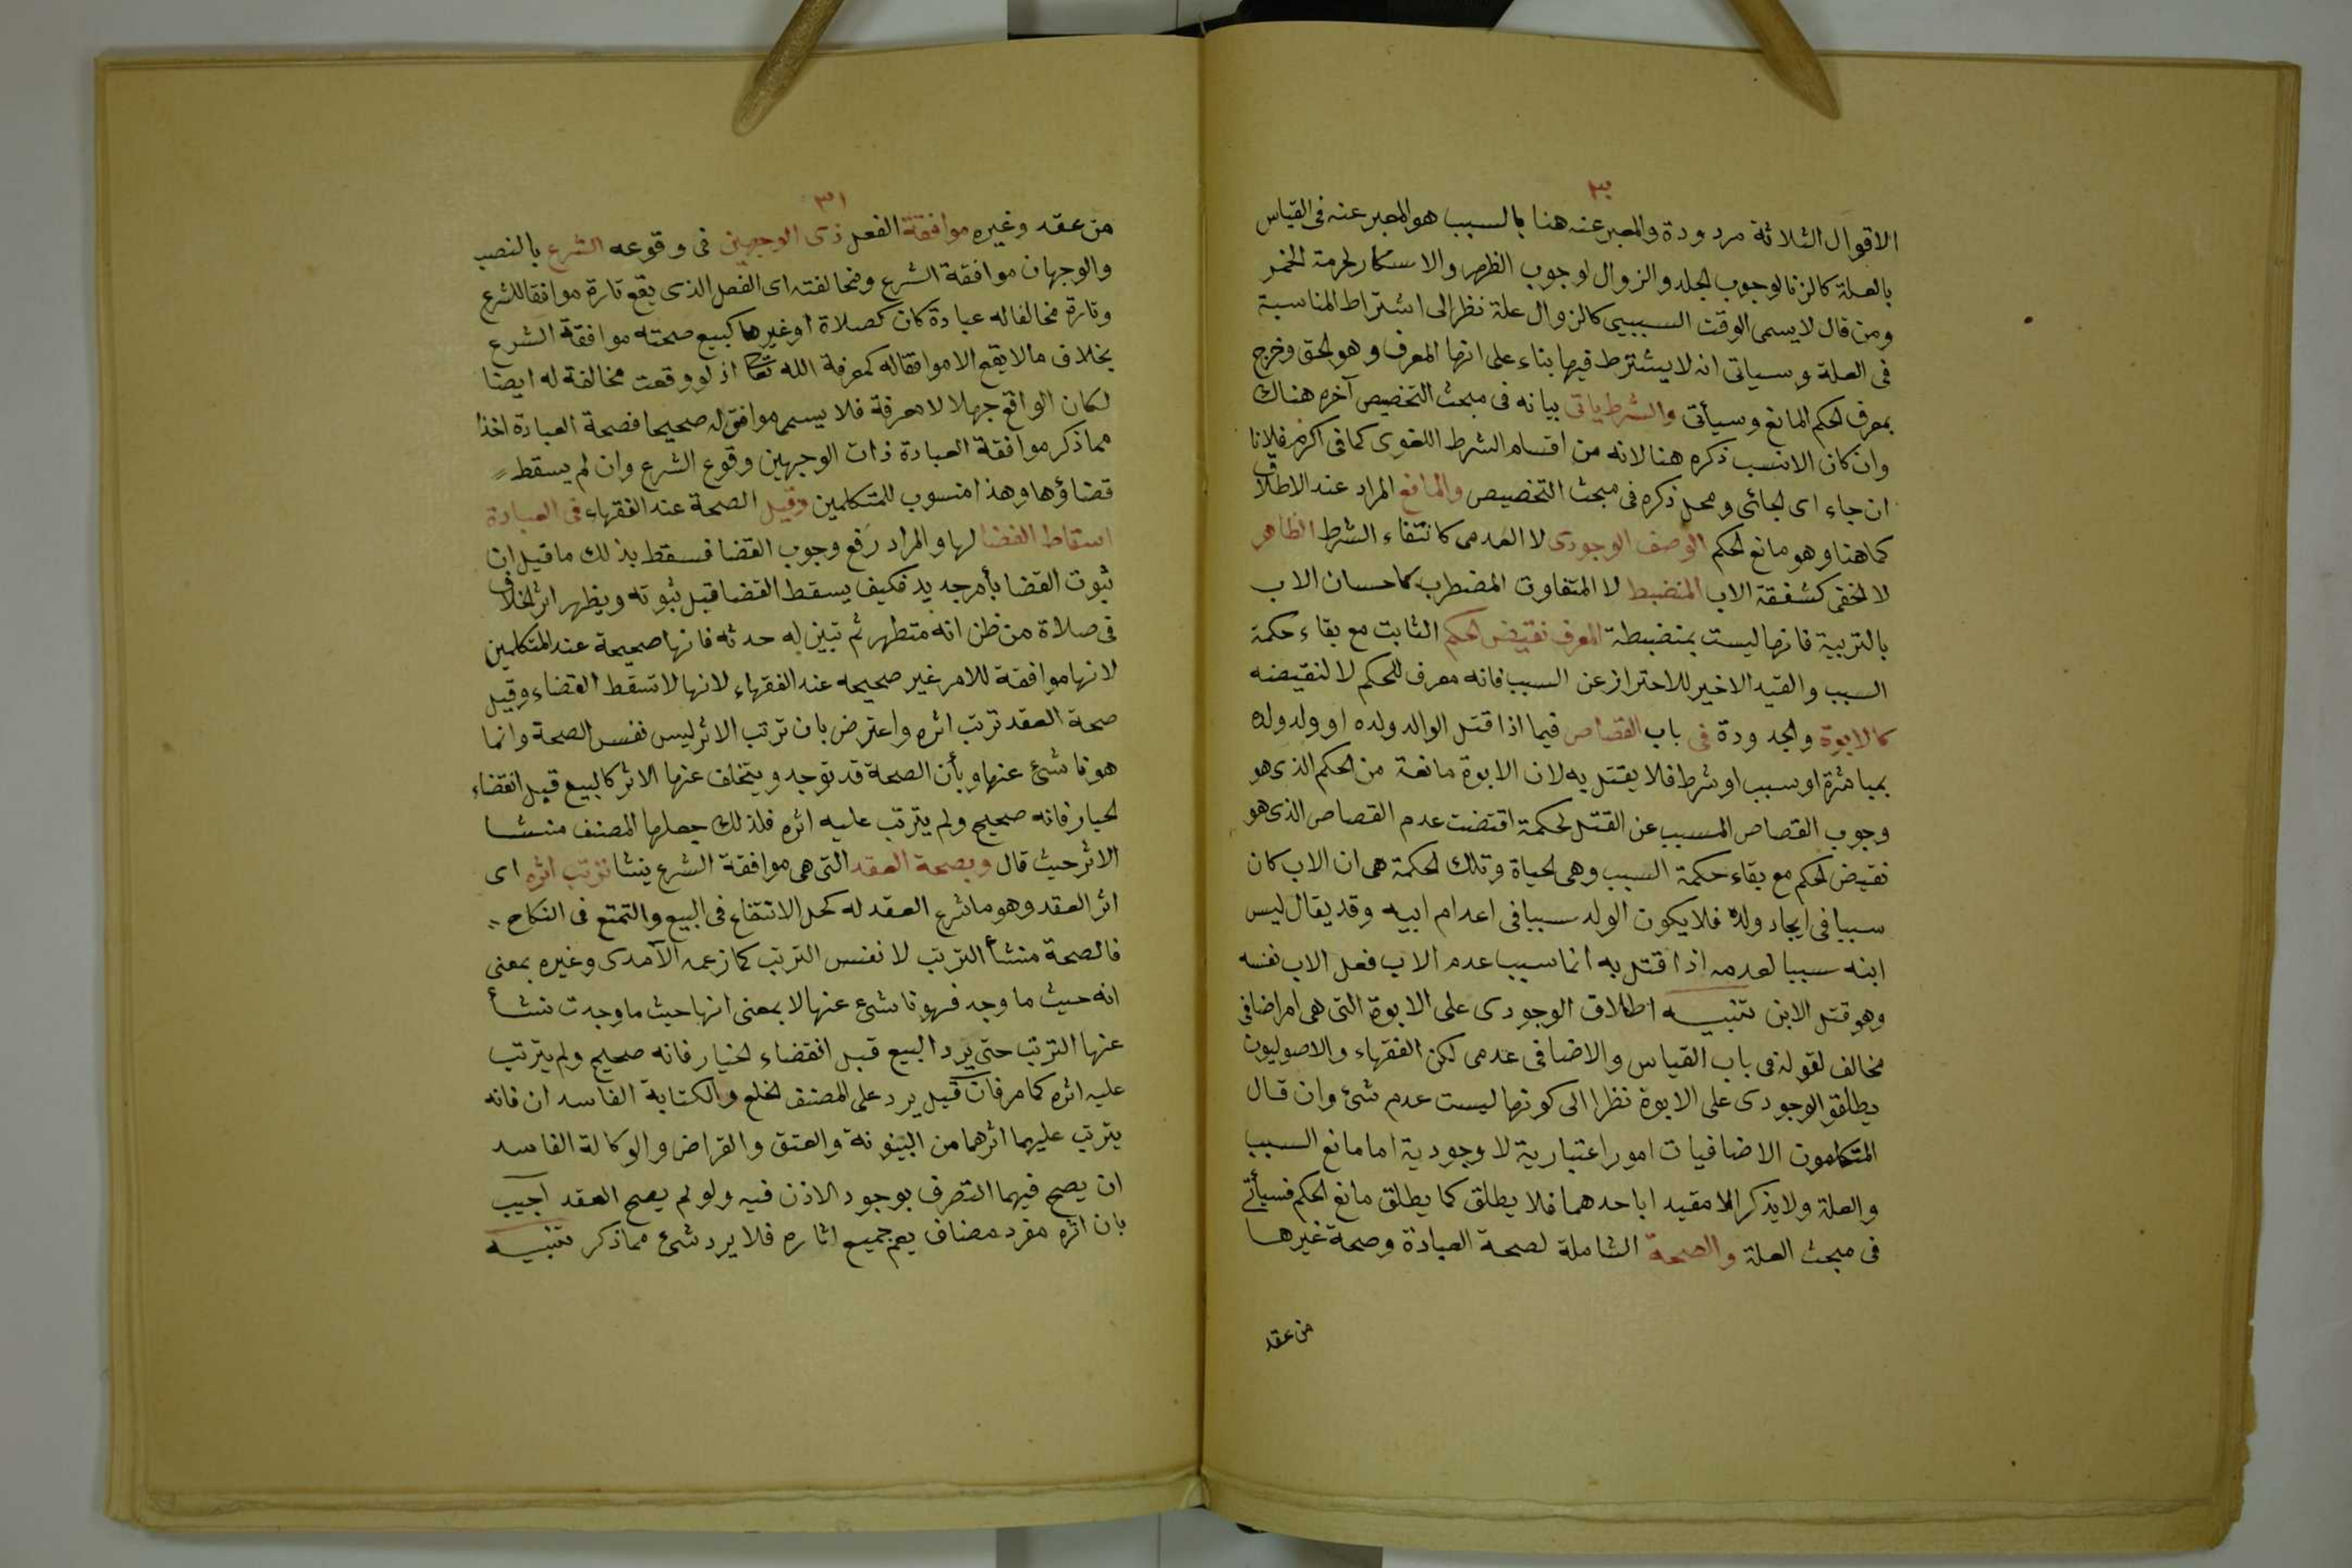 ٣٠
الاقوال الثلاثة مردودة والمعبر عنه هنا بالسبب هو المعبر عنه فى القياس
بالعلة كالزنا لوجوب الجلد والزوال لوجوب الظهر والاسكار لحرمة الخمر
ومن قال لا يسمى الوقت السببى كالزوال علة نظرا الى اشتراط المناسبة
فى العلة وسياتى انه لا يشترط فيها بناء على انها المعرف وهو الحق وخرج
بمعرف الحكم المانع وسيأتى والشرط ياتى بيانه فى مبحث التخصيص آخره هناك
وان كان الانسب ذكره هنا لانه من اقسام الشرط اللغوى كما فى اكرم فلانا
ان جاء اى الجائى ومحل ذكره فى مبحث التخصيص والمانع المراد عند الاطلاق
كما هنا وهو مانع الحكم الوصف الوجودى لا العدمى كانتفاء الشرط الظاهر
لا الخفى كشفقة الاب المنضبط لا المتفاوت المضطرب كاحسان الاب
بالتربية فانها ليست بمنضبطة المعرف نقيض الحكم الثابت مع بقاء حكمة
السبب والقيد الاخير للاحتراز عن السبب فانه معرف للحكم لا لنقيضه
كالابوة والجدودة فى باب القصاص فيما اذا قتل الوالد ولده او ولد ولده
بمباشرة او سبب او شرط فلا يقتل به لان الابوة مانعة من الحكم الذى هو
وجوب القصاص المسبب عن القتل لحكمة اقتضت عدم القصاص الذى هو
نقيض الحكم مع بقاء حكمة السبب وهى الحياة وتلك الحكمة هى ان الاب كان
سببا فى ايجاد ولده فلا يكون الولد سببا فى اعدام ابيه وقد يقال ليس
ابنه سببا لعدمه اذا قتل به انما سبب عدم الاب فعل الاب نفسه
وهو قتل الابن تنبيه اطلاق الوجودى على الابوة التى هى امر اضافى
مخالف لقوله فى باب القياس والاضافى عدمى لكن الفقهاء والاصوليون
يطلقو الوجودى على الابوة نظرا الى كونها ليست عدم شئ وان قال
المتكلمون الاضافيات امور اعتبارية لا وجودية اما مانع السبب
والعلة ولا يذكر الا مقيدا باحدهما فلا يطلق كما يطلق مانع الحكم فسيأتى
فى مبحث العلة والصحة الشاملة لصحة العبادة وصحة غيرها
من عقد
٣١
من عقد وغيره موافقة الفعل ذى الوجهين فى وقوعه الشرع بالنصب
والوجهان موافقة الشرع ومخالفته اى الفعل الذى يقع تارة موافقا للشرع
وتارة مخالفا له عبادة كان كصلاة او غيرها كبيع صحته موافقة الشرع
بخلاف ما لا يقع الا موافقا له كمعرفة الله تعالى اذ لو وقعت مخالفة له ايضا
لكان الواقع جهلا لا معرفة فلا يسمى موافق له صحيحا فصحة العبادة اخذا
مما ذكر موافقة العبادة ذات الوجهين وقوع الشرع وان لم يسقط
قضاؤها وهذا منسوب للمتكلمين وقيل الصحة عند الفقهاء فى العبادة
اسقاط القضا لها والمراد رفع وجوب القضا فسقط بذلك ما قيل ان
ثبوت القضا بأمر جديد فكيف يسقط القضا قبل ثبوته ويظهر اثر الخلاف
فى صلاة من ظن انه متطهر ثم تبين له حدثه فانها صحيحة عند المتكلمين
لانها موافقة للامر غير صحيحه عند الفقهاء لانها لا تسقط القضاء وقيل
صحة العقد ترتب اثره واعترض بان ترتب الاثر ليس نفس الصحة وانما
هو ناشئ عنها وبأن الصحة قد توجد ويتخلف عنها الاثر كالبيع قبل انقضاء
الخيار فانه صحيح ولم يترتب عليه اثره فلذلك جعلها المصنف منشا
الاثر حيث قال وبصحة العقد التى هى موافقة الشرع ينشا ترتب اثره اى
اثر العقد وهو ما شرع العقد له كحل الانتفاع فى البيع والتمتع فى النكاح
فالصحة منشأ الترتب لا نفس الترتب كما زعمه الآمدى وغيره بمعنى
انه حيث ما وجد فهو ناشئ عنها لا بمعنى انها حيث ما وجدت نشأ
عنها الترتب حتى يرد البيع قبل انقضاء الخيار فانه صحيح ولم يترتب
عليه اثره كما مر فان قيل يرد على المصنف الخلع والكتابة الفاسدان فانه
يترتب عليهما اثرهما من البينونة والعتق والقراض والوكالة الفاسد
ان يصح فيهما التصرف بوجود الاذن فيه ولو لم يصح العقد اجيب
بان اثره مفرد مضاف يعم جميع اثاره فلا يرد شئ مما ذكر تنبيه